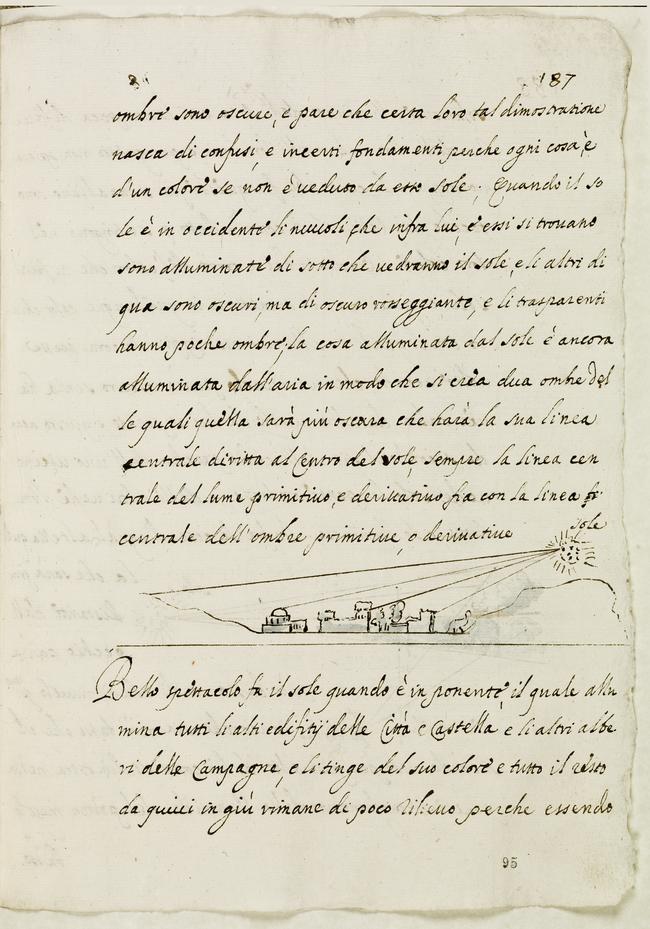 187
ombre sono oscure, e pare che certa loro tal dimostratione
nasca di confusi, e incerti fondamenti perche ogni cosa è
d'un colore se non è veduto da esso sole; Quando il so
le è in occidente li nuuoli, che infra lui, e essi si trouano
sono alluminate di sotto che vedranno il sole, e li altri di
qua sono oscuri, ma di oscuro rosseggiante, e li trasparenti
hanno poche ombre; la cosa alluminata dal sole è ancora
alluminata dall'aria in modo che si crea dua ombre del
le quali quella sarà più oscura che harà la sua linea
centrale diritta al Centro del sole, sempre la linea cen
trale del lume primitiuo, e deriuatiuo fia con la linea
centrale dell'ombre primitiue, o deriuatiue
sole
Bello spettacolo fa il sole quando è in ponente il quale allu
mina tutti li alti edifitij delle Città e Castella, e li altri albe
ri delle Campagne, e li tinge del suo colore e tutto il resto
da quiui in giù rimane di poco rilieuo perche essendo
95